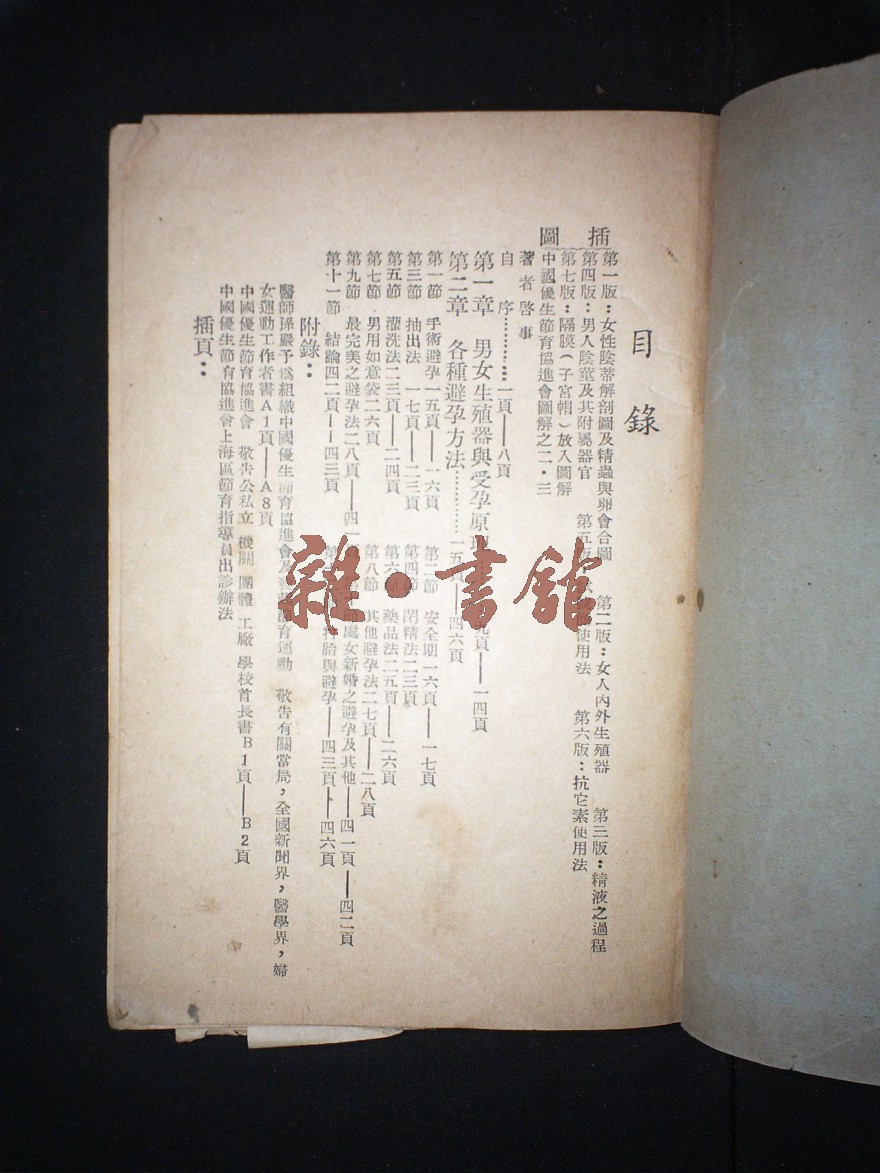 目錄
插圖
第一版：女性陰蒂解剖圖及精蟲與卵會合圖　第二版：女人內外生殖器　第三版：精液之過程
第四版：男人陰莖及其附屬器官　第五版　使用法　第六版：抗它素使用法
第七版：隔膜（子宮帽）放入圖解
中國優生節育協進會圖解之二・三
著者啓事
自序…………一頁——八頁
第一章　男女生殖器與受孕原　九頁——一四頁
第二章　各種避孕方法…………一五頁——四六頁
第一節　手術避孕一五頁——一六頁　第二節　安全期一六頁——一七頁
第三節　抽出法　一七頁——二三頁　第四節　閉精法二三頁
第五節　灌洗法二三頁——二四頁　第六節　藥品法二五頁——二六頁
第七節　男用如意袋二六頁　第八節　其他避孕法二七頁——二八頁
第九節　最完美之避孕法二八頁——四一頁　處女新婚之避孕及其他——四一頁——四二頁
第十一節　結論四二頁——四三頁　打胎與避孕——四三頁——四六頁
附錄：
醫師孫嚴予爲組織中國優生節育協進會及　節育運動　敬告有關當局，全國新聞界，醫學界，婦
女運動工作者書A1頁——A8頁
中國優生節育協進會　敬告公私立　機關　團體　工廠　學校首長書B1頁——B2頁
中國優生節育協進會上海區節育指導員出診辦法
插頁：
雜・書館